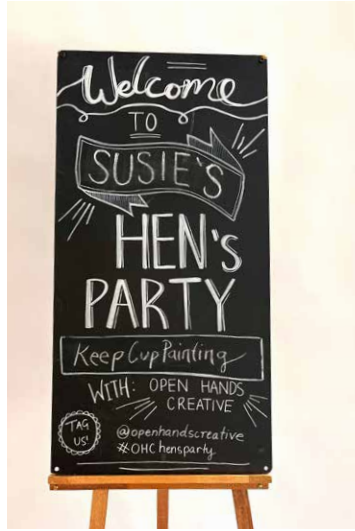 Welcome
TO
SUSIE'S
HEN's
PARTY
KeepCupPainting
WITH: OPEN HANDS
CREATIVE
TAG
US!
@openhandscreative
#OHChensparty